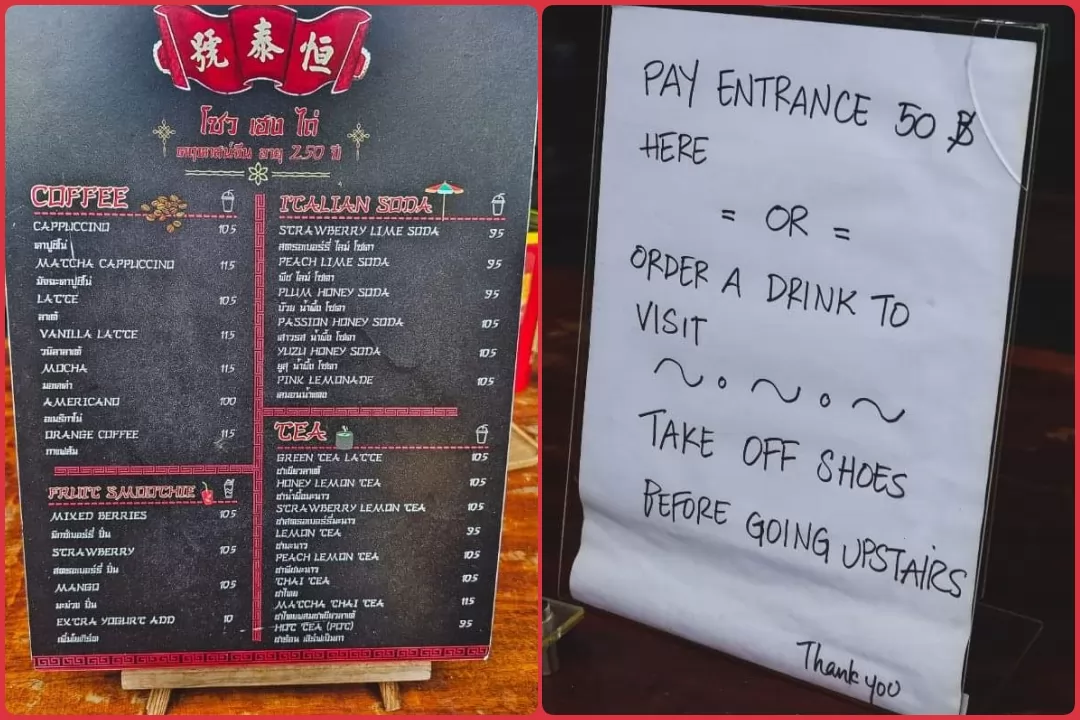 號泰恒
โซว เฮง ไถ่
คฤหาสน์จีน อายุ 250 ปี
COFFEE
CAPPUCCINO 105
คาปูชิโน่
MATCHA CAPPUCCINO 115
มัจฉะคาปูชิโน่
LATTE 105
ลาเต้
VANILLA LATTE 115
วนิลาลาเต้
MOCHA 115
มอคค่า
AMERICANO 100
อเมริกาโน่
ORANGE COFFEE 115
กาแฟส้ม
FRUIT SMOOTHIE
MIXED BERRIES 105
มิกซ์เบอร์รี่ ปั่น
STRAWBERRY 105
สตรอเบอร์รี่ ปั่น
MANGO 105
มะม่วง ปั่น
EXTRA YOGURT ADD 10
เพิ่มโยเกิร์ต
ITALIAN SODA
STRAWBERRY LIME SODA 95
สตรอเบอร์รี่ ไลม์ โซดา
PEACH LIME SODA 95
พีช ไลม์ โซดา
PLUM HONEY SODA 95
บ๊วย น้ำผึ้ง โซดา
PASSION HONEY SODA 105
เสาวรส น้ำผึ้ง โซดา
YUZU HONEY SODA 105
ยูสุ น้ำผึ้ง โซดา
PINK LEMONADE 105
เลมอนน้ำแดง
TEA
GREEN TEA LATTE 105
ชาเขียวลาเต้
HONEY LEMON TEA 105
ชาน้ำผึ้งมะนาว
STRAWBERRY LEMON TEA 105
ชาสตรอเบอร์รี่มะนาว
LEMON TEA 95
ชามะนาว
PEACH LEMON TEA 105
ชาพีชมะนาว
CHAI TEA 105
ชาไทย
MATCHA CHAI TEA 115
ชาไทยผสมชาเขียวลาเต้
HOT TEA (POT) 95
ชาร้อน เสิร์ฟเป็นกา
PAY ENTRANCE 50 ฿
HERE
= OR =
ORDER A DRINK TO
VISIT
TAKE OFF SHOES
BEFORE GOING UPSTAIRS
Thank you